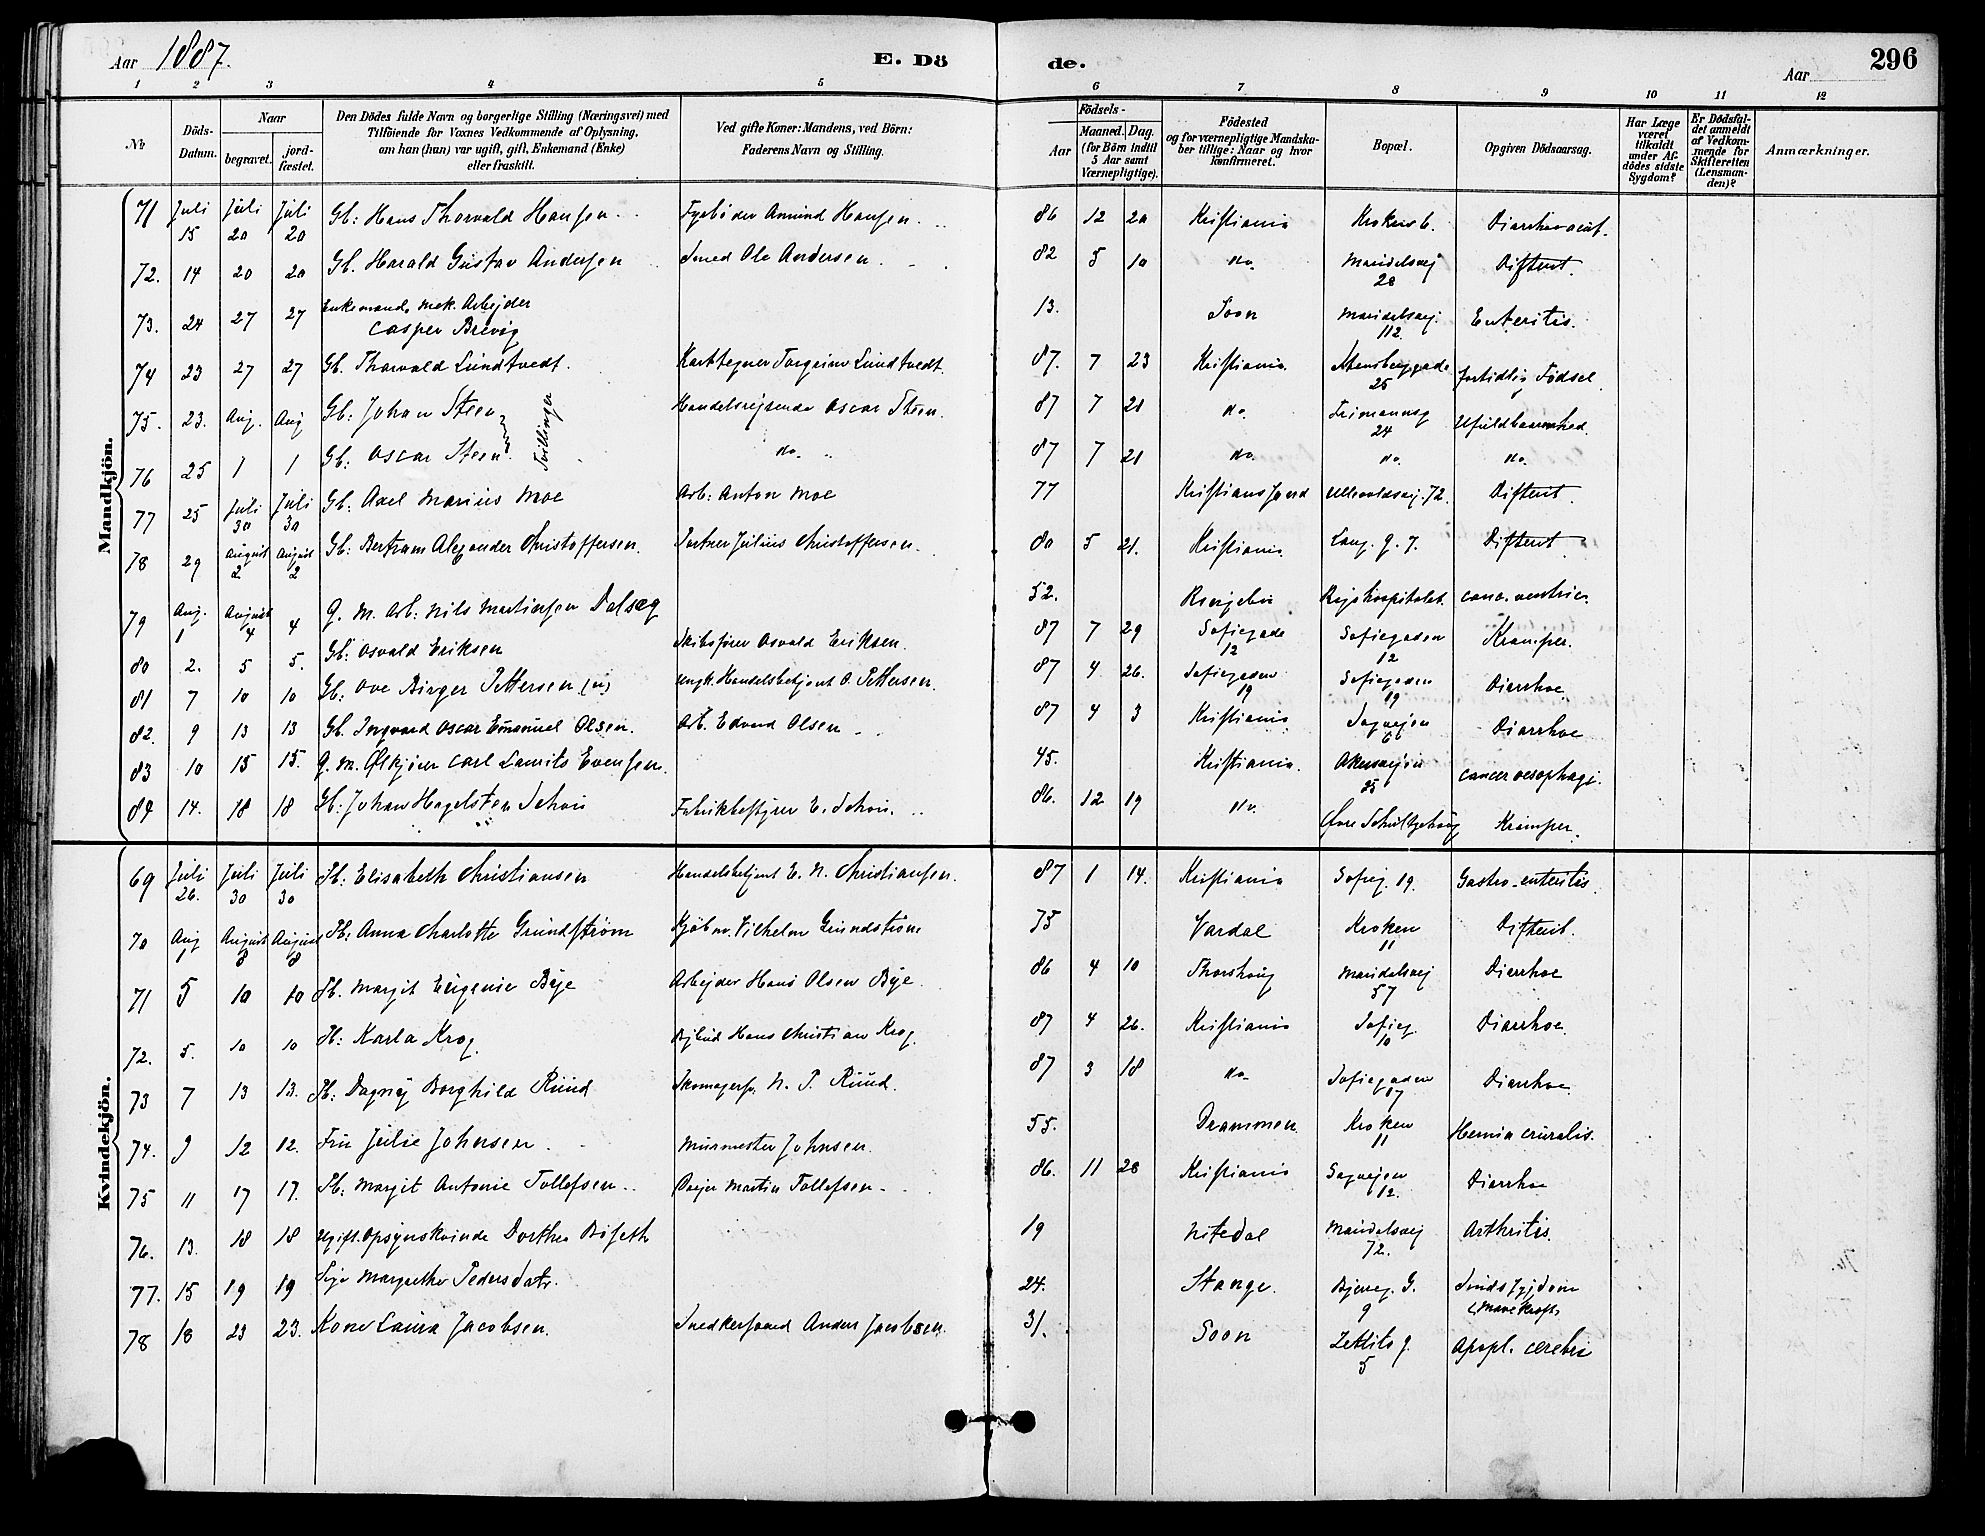 Aar 1887. E. Dö de. Aar 296
1 2 3 4 5 6 7 8 9 10 11 12
No
Döds-Datum.
Naar
begravet.
jord-fæstet.
Den Dödes fulde Navn og borgerlige Stilling (Næringsvei) med
Tilföiende for Voxnes Vedkommende af Oplysning,
om han (hun) var ugift, gift, Enkemand (Enke)
eller fraskilt.
Ved gifte Koner: Mandens, ved Börn:
Faderens Navn og Stilling.
Födsels-
Aar
Maaned. Dag.
(for Börn indtil
5 Aar samt
Værnepligtige).
Födested
og for værnepligtige Mandska-
ber tillige: Naar og hvor
konfirmeret.
Bopæl.
Opgiven Dödsaarsag.
Har Læge
været
tilkaldt
under Af-
dödes sidste
Sygdom?
Er Dödsfal-
det anmeldt
af Vedkom-
mende for
Skifteretten
(Lensman-
den)?
Anmærkninger.
Mandkjön.
71 Juli 15 Juli 20 Juli 20 Gb: Hans Thorvald Hansen Fyrböder Amund Hansen. 86 12 20 Kristiania Kroken 6. Diarrhoe acut.
72. 14 20 20 Gb. Harald Gustav Andersen Smed Ole Andersen 82 5 10 do. Maridalsvej 28 Difterit.
73. 24 27 27 Enkemand, mek. Arbejder Casper Brevig 13. Soon Maridalsvej. 112. Enteritis.
74 23 27 27 Gb. Thorvald Lundtvedt. Karttegner Torgrim Lundtvedt. 87. 7 23 Kristiania Stensberggade 25 fortidlig Födsel.
75. 23. Aug. Aug Gb: Johan Steen Tvillinger Handelsrejsende Oscar Steen. 87 7 21 do. Frimannsg 24 Ufuldbaarenhed.
76 25 1 1 Gb: Oscar Steen do. 87 7 21 do. do. do.
77 25 Juli 30 Juli 30 Gb: Axel Marius Moe Arb: Anton Moe 77 Kristianssand Ullevoldsvej. 72. Difterit.
78 29 August 2 August 2 Gb: Bertram Alexander Christoffersen. Portner Julius Christoffersen. 80 5 21. Kristiania. Lang. g. 7. Difterit
79 Aug. 1 August 4 4 G. M. Arb: Nils Martinsen Dalseg 52. Ringebu Rigshospitalet. canc. ventric.
80 2. 5 5. Gb: Osvald Eriksen Skibsförer Osvald Eriksen. 87 7 29 Sofiegade 12 Sofiegaden 12 Kramper.
81 7 10 10 Gb: Ove Birger Pettersen (u) ungk. Handelsbetjent O. Pettersen. 87 4 26. Sofiegaden 19 Sofiegaden 19 Diarrhoe
82. 9 13 13 Gb. Ingvard Oscar Emanuel Olsen. Arb. Edvard Olsen 87 4 3 Kristiania Sagvejen 6 Diarrhoe
83 10 15 15. G. M. Ølkjörer Carl Laurits Evensen. 45. Kristiania. Akersvejen 25 cancer oesophagi.
84 14. 18 18 Gb: Johan Hagelsten Schou Fabrikbestyrer E. Schou. 86. 12 19 do. Övre Schultzehaug Kramper.
Kvindekjön.
69 Juli 26. Juli 30 Juli 30 Pb: Elisabeth Christiansen Handelsbetjent E. N. Christiansen. 87 1 14. Kristiania Sofieg. 19. Gastro-enteritis.
70 Aug 1 August 8 August 8 Pb: Anna Charlotte Grundström Kjöbm. Vilhelm Grundström 75 Vardal Kroken 11 Difterit.
71 5 10 10 Pb. Margit Eugenie Bye Arbejder Hans Olsen Bye. 86 4 10 Thorshaug Maridalsvej 57 Diarrhoe
72. 5. 10 10 Pb: Karla Krog. Bybud Hans Christian Krog. 87 4 26. Kristiania Sofieg. 10 Diarrhoe.
73 7 13 13. Pb: Dagny Borghild Ruud Skomagersv. N. P. Ruud. 87 3 18 do. Sofiegaden 17 Diarrhoe.
74. 9 12 12. Fru Julie Johnsen Murmester Johnsen. 55. Drammen. Kroken 11 Hernia cruralis.
75 11 17 17. Pb: Margit Antonie Tollefsen Drejer Martin Tollefsen 86. 11 28 Kristiania Sagvejen 12. Diarrhoe
76. 13. 18 18 Ugift. Opsynskvinde Dorthea Böseth 19 Nitedal Maridalsvej 72. Arthritis.
77. 15 19 19 Margrethe Pedersdatr. 24. Stange. Bjerreg. G. 9 Sindssygdom (Mavekræft)
78 18 23 23. Kone Laura Jacobsen. Snedkersvend Anders Jacobsen. 31. Soon Zetlitz g. 5 Apopl. cerebri